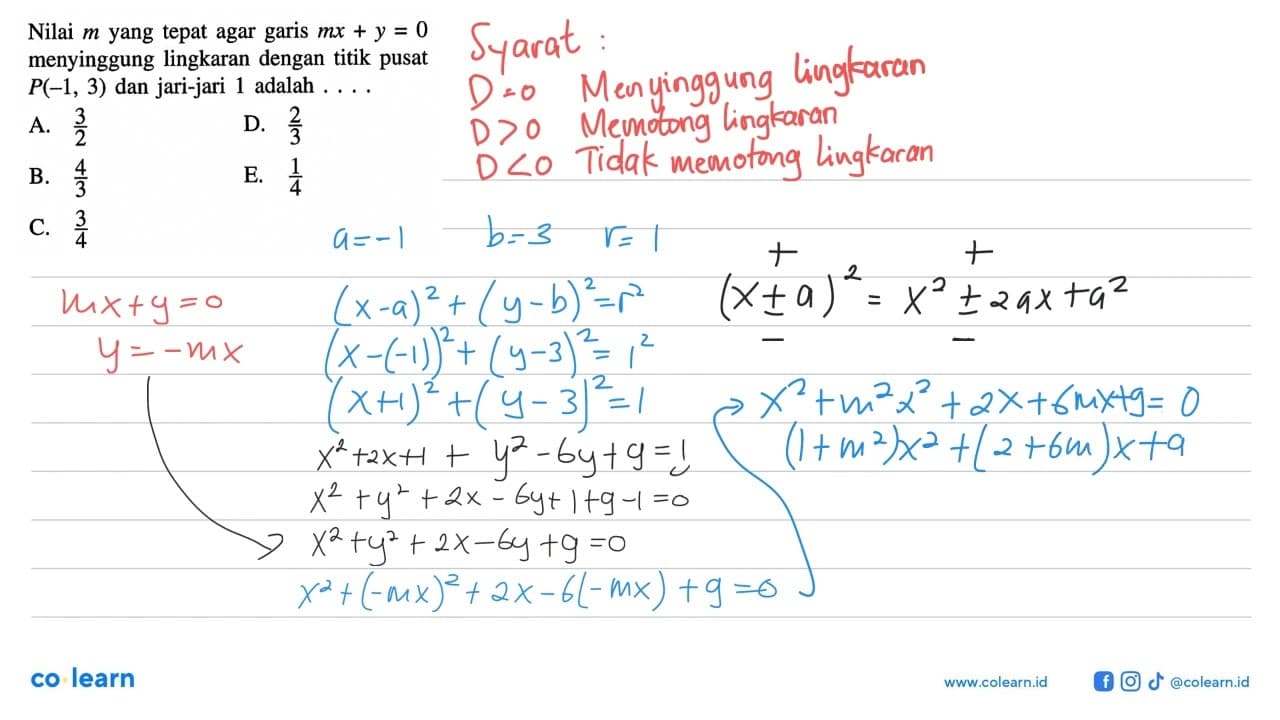 Nilai m yang tepat agar garis mx + y = 0
menyinggung lingkaran dengan titik pusat
P(−1, 3) dan jari-jari 1 adalah . . . .
A. 3/2 D. 2/3
B. 4/3 E. 1/4
C. 3/4
Syarat :
D=0 Menyinggung lingkaran
D>0 Memotong lingkaran
D<0 Tidak memotong lingkaran
a=-1 b=3 r=1
mx+y=0
y=-mx
(x-a)²+(y-b)²=r²
(x-(-1))²+(y-3)²=1²
(x+1)²+(y-3)²=1
x²+2x+1+y²-6y+9=1
x²+y²+2x-6y+1+9-1=0
x²+y²+2x-6y+9=0
x²+(-mx)²+2x-6(-mx)+9=0
+ +
(x±a)²=x²±2ax+a²
− −
x²+m²x²+2x+6mx+9=0
(1+m²)x²+(2+6m)x+9
co learn
www.colearn.id
@colearn.id